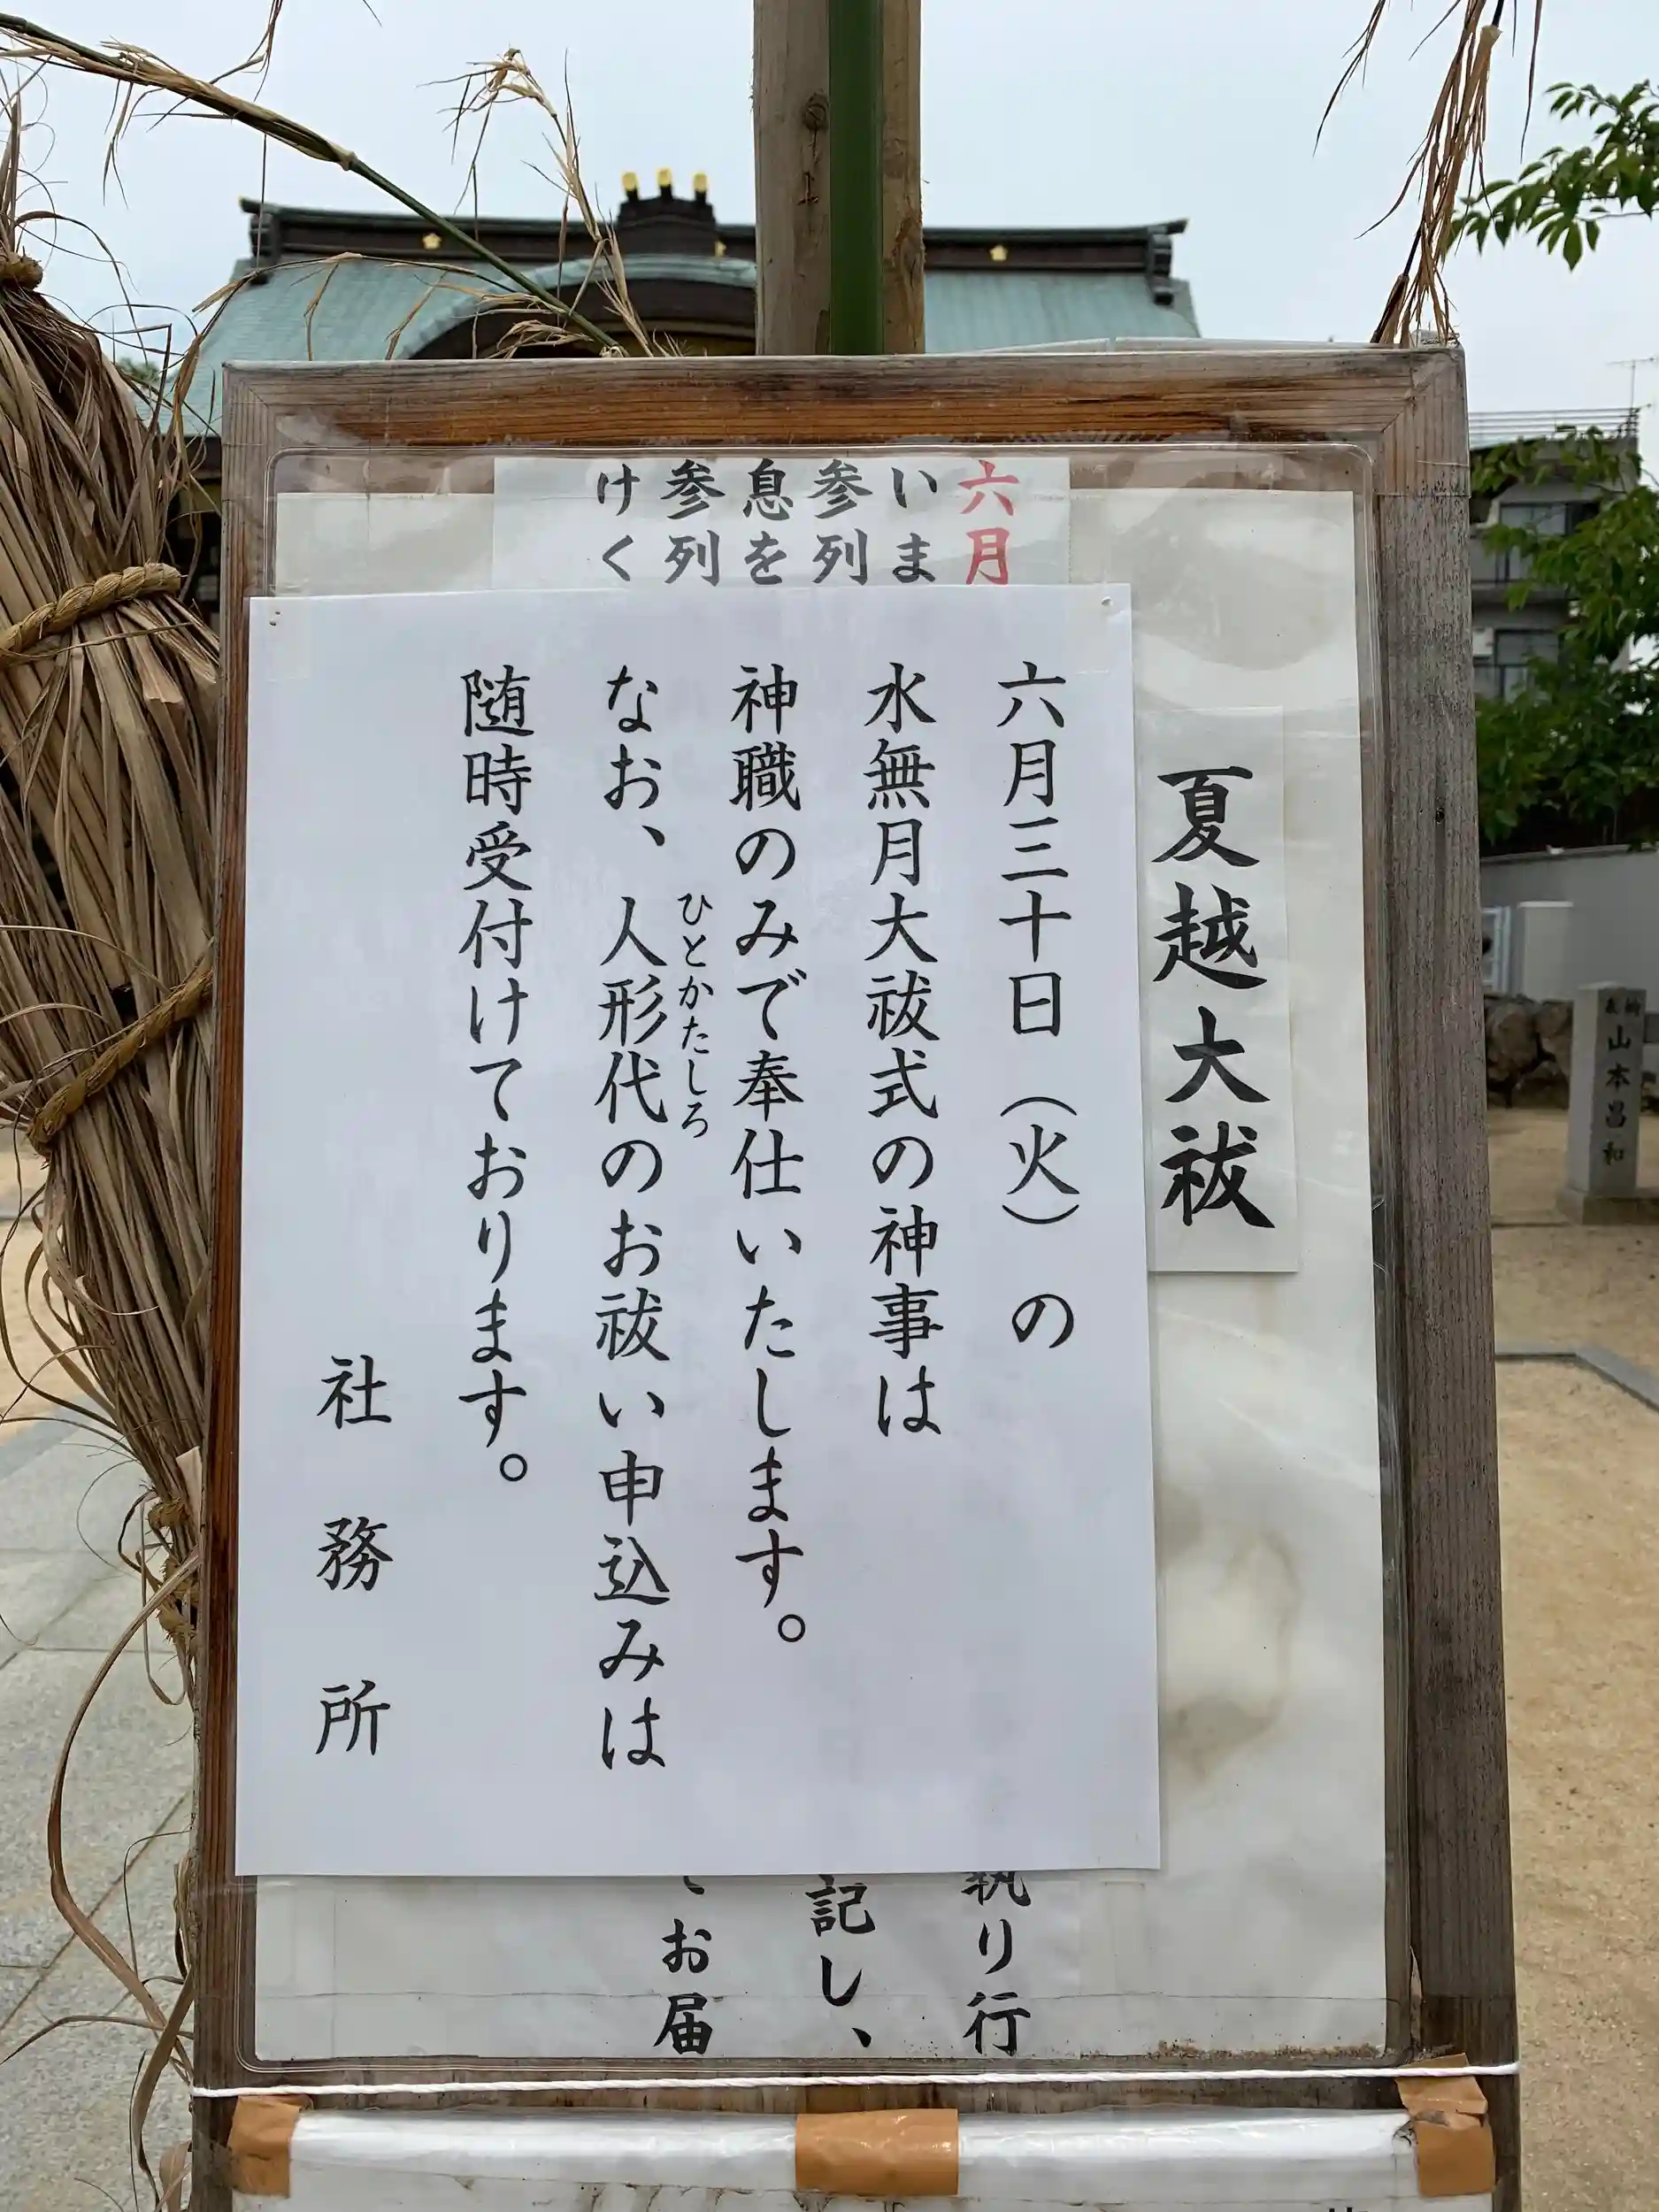 夏越大祓
六月
いま
参列
息を
参列
けく
六月三十日（火）の
水無月大祓式の神事は
神職のみで奉仕いたします。
ひとかたしろ
なお、人形代のお祓い申込みは
随時受付けております。
社務所
執り行
記し、
お届
山本昌和